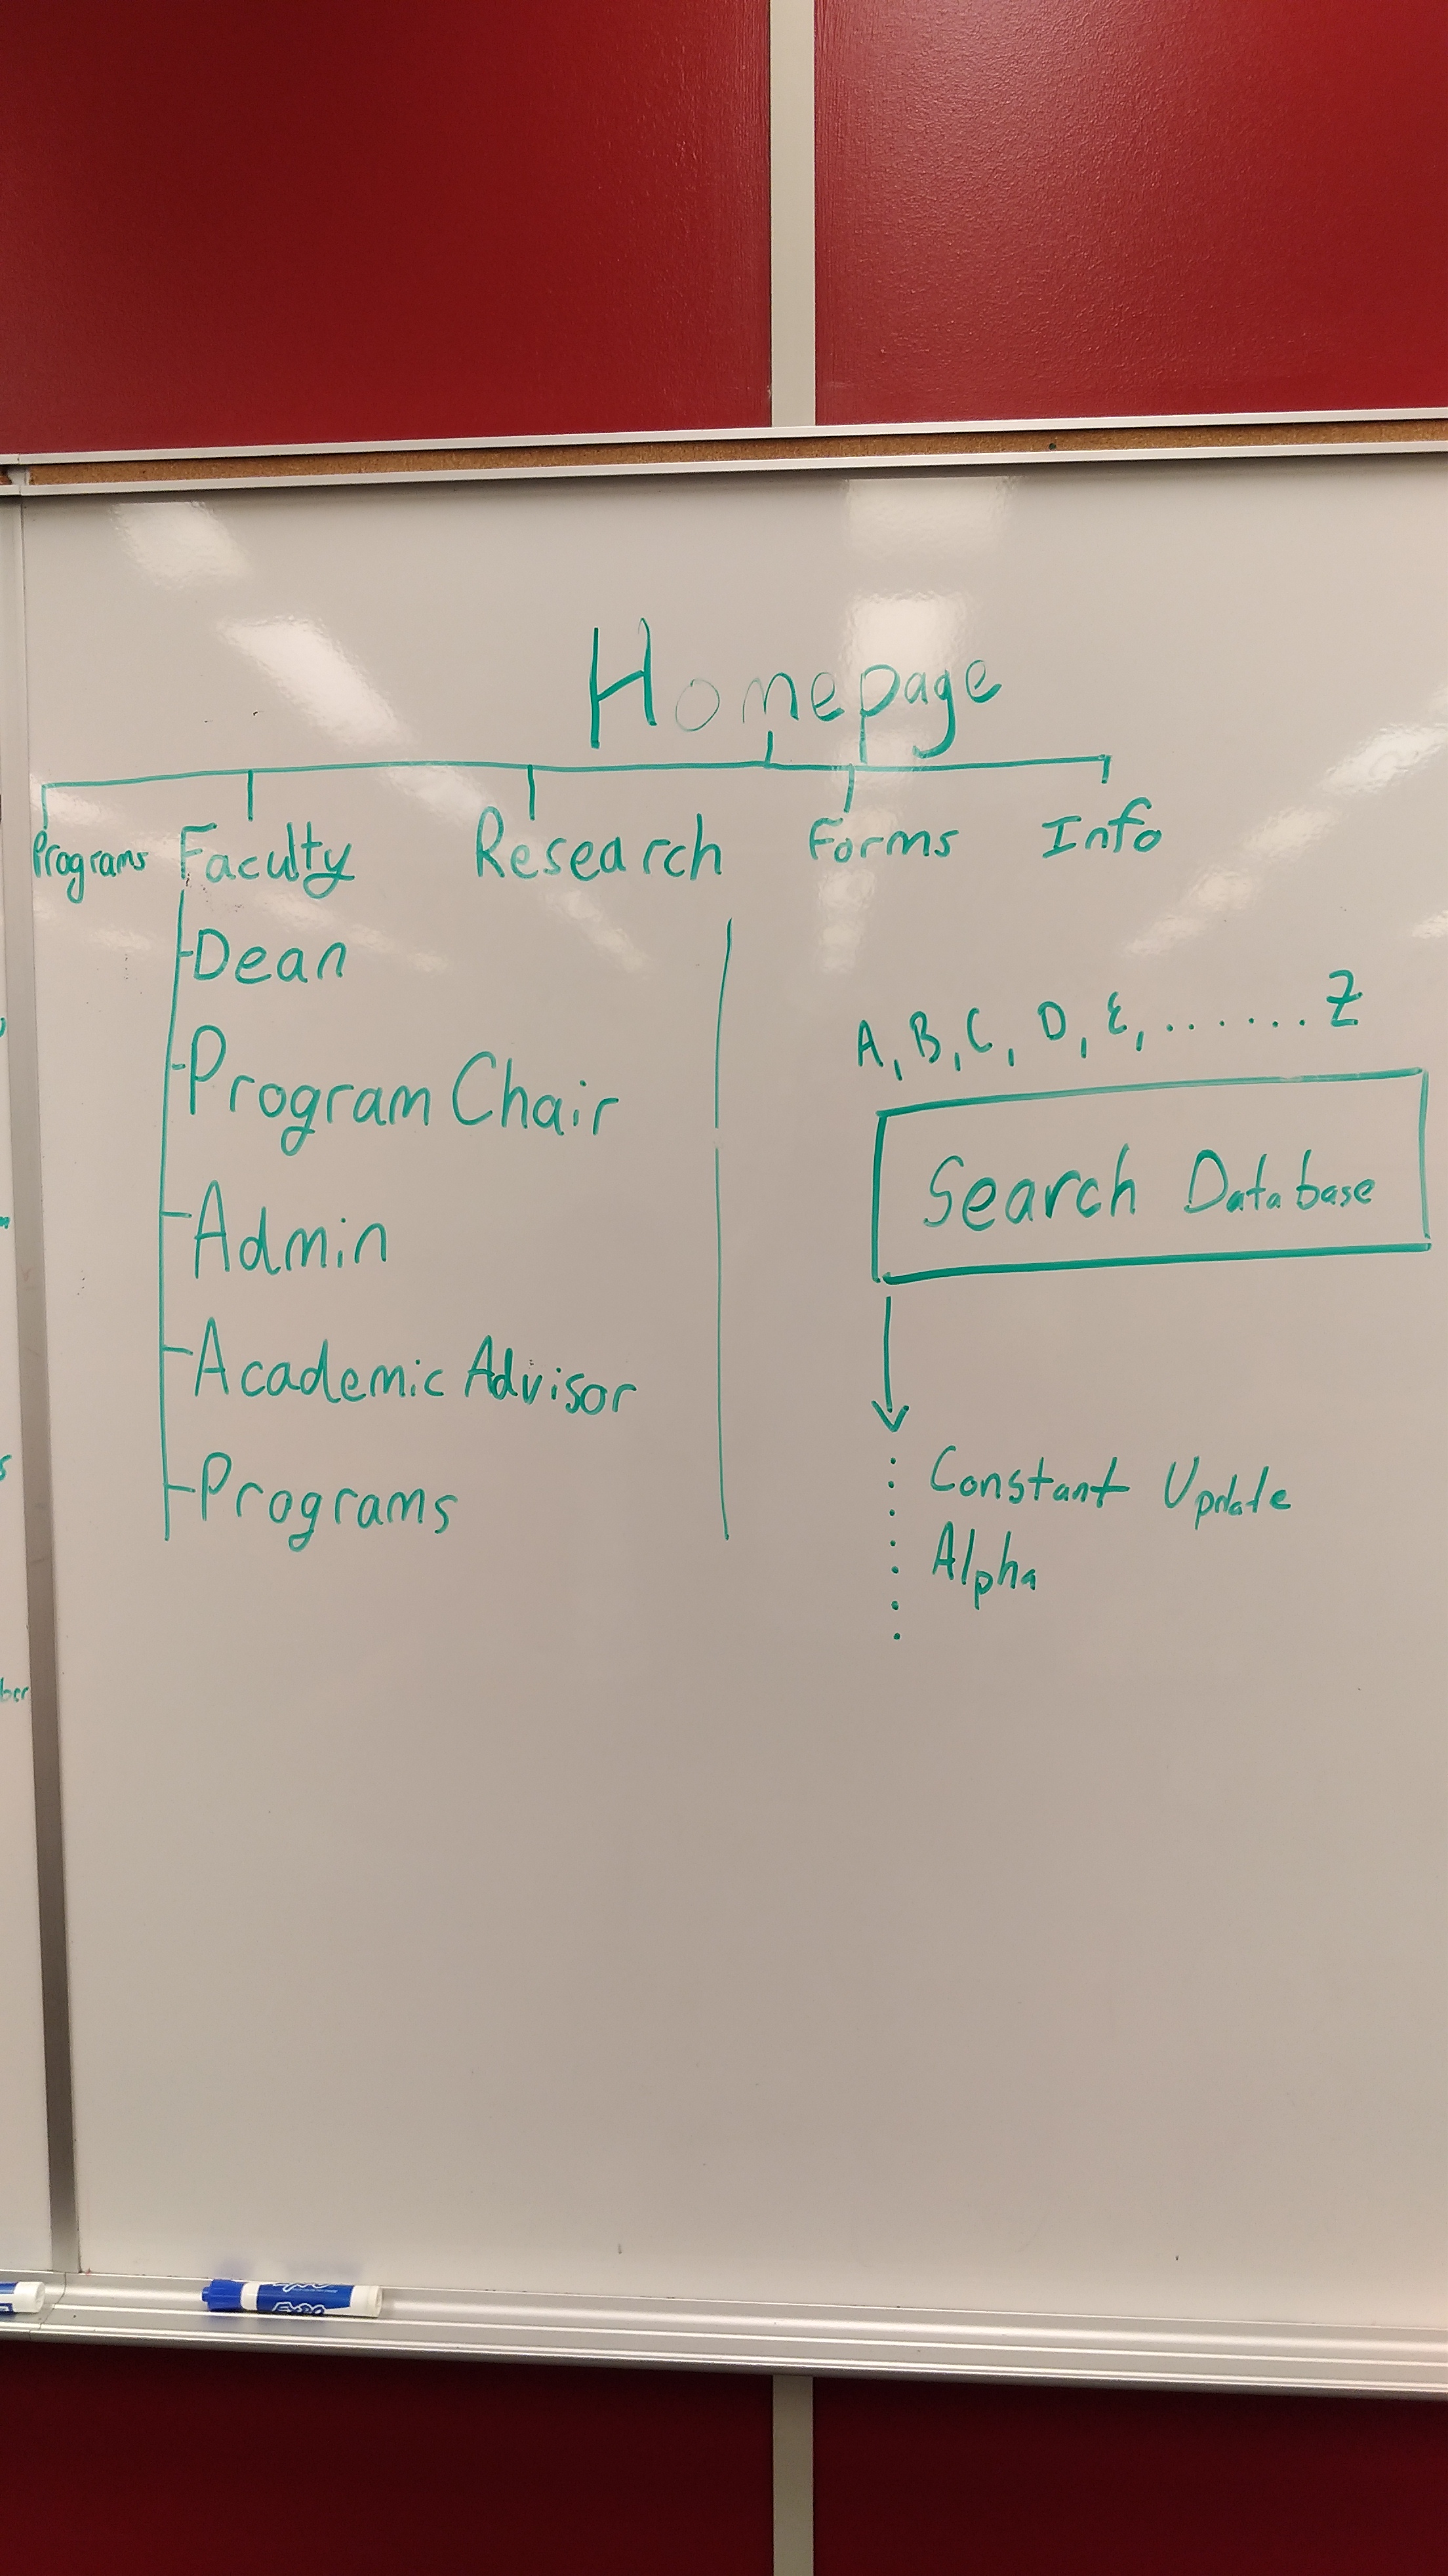 Homepage
Programs Faculty Research Forms Info
Dean
Program Chair
Admin
Academic Advisor
Programs
A, B, C, D, E, ....... Z
Search Database
Constant Update
Alpha
EXPO